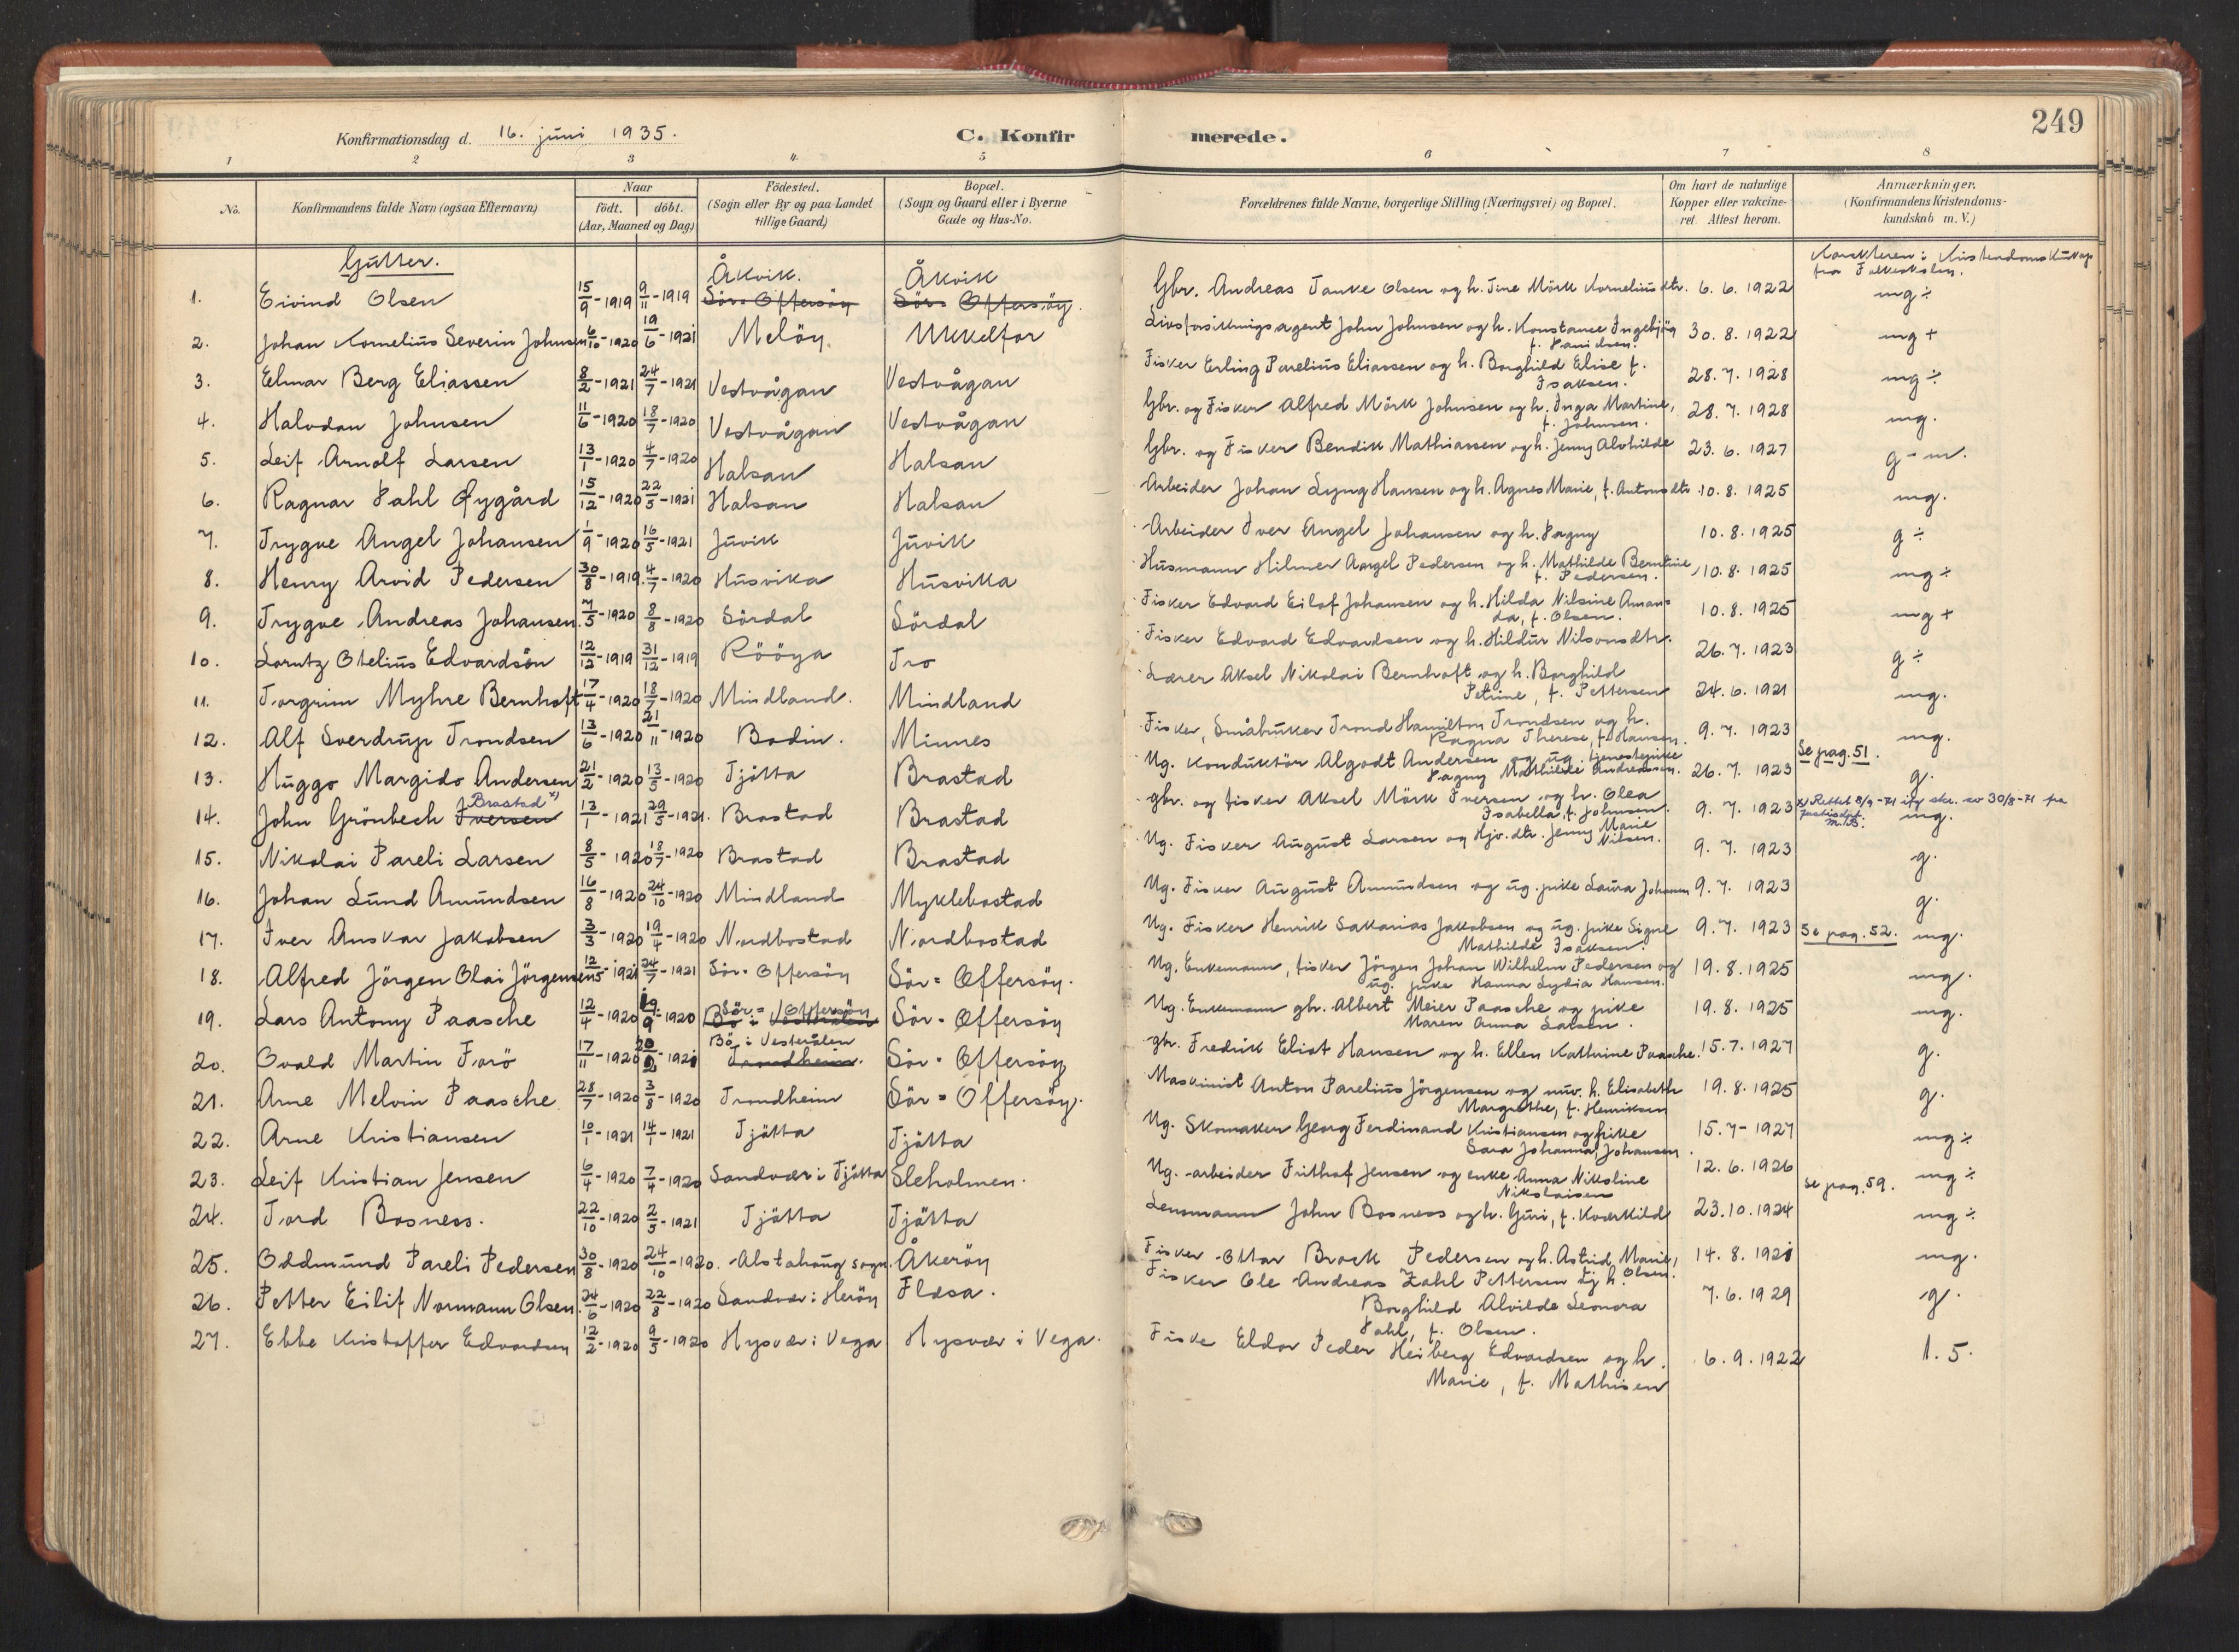 249
Konfirmationsdag d. 16. juni 1935. C. Konfirmerede.
1 2 3 4 5 6 7 8
No. Konfirmandens fulde Navn (ogsaa Efternavn) Naar födt. döbt. (Aar, Maaned og Dag) Födested. (Sogn eller By og paa Landet tillige Gaard) Bopæl. (Sogn og Gaard eller i Byerne Gade og Hus-No. Forældrenes fulde Navne, borgerlige Stilling (Næringsvei) og Bopæl. Om havt de naturlige Kopper eller vakcineret. Attest herom. Anmærkninger. (Konfirmandens Kristendomskundskab m. V.)
Gutter.
Karakteren i Kristendomskunskap fra Folkeskolen.
1. Eivind Olsen 15/9-1919 9/11-1919 Åkvik. Sör-Offersöy Åkvik Sör-Offersöy. Gbr. Andreas Tanke Olsen og h. Tine Mörk Korneliusdtr. 6. 6. 1922 mg÷
2. Johan Kornelius Severin Johnsen 6/10-1920 19/6-1921 Melöy. Livsforsikringsagent John Johnsen og h. Konstance Ingebjög f. Danielsen. 30. 8. 1922 mg+
3. Elmar Berg Eliassen 8/2-1921 24/7-1921 Vestvågan Vestvågan Fisker Erling Parelius Eliassen og h. Borghild Elise f. Isaksen. 28. 7. 1928 mg÷
4. Halvdan Johnsen 11/6-1920 18/7-1920 Vestvågan Vestvågan Gbr. og Fisker Alfred Mörk Johnsen og h. Inga Martine, f. Johnsen. 28. 7. 1928 mg.
5. Leif Arnolf Larsen 13/1-1920 4/7-1920 Halsan Halsan Gbr. og Fisker Bendik Mathiassen og h. Jenny Alvhilde 23. 6. 1927 g-m.
6. Ragnar Dahl Øygård 15/12-1920 22/5-1921 Halsan Halsan Arbeider Johan Lyng Hansen og h. Agnes Marie, f. Antonsdtr. 10. 8. 1925 mg.
7. Trygve Angel Johansen 1/9-1920 16/5-1921 Juvik Juvik Arbeider Iver Angel Johansen og h. Dagny 10. 8. 1925 g÷
8. Henry Arvid Pedersen 30/8-1919. 4/7-1920 Husvika Husvika Husmann Hilmer Angel Pedersen og h. Mathilde Berntine, f. Pedersen. 10. 8. 1925 mg÷
9. Trygve Andreas Johansen. 7/5-1920 8/8-1920 Sördal Sördal Fisker Edvard Eilof Johansen og h. Hilda Nilsine Amanda, f. Olsen. 10. 8. 1925 mg+
10. Lorutz Otelius Edvardsön 12/12-1919 31/12-1919 Rööya Tro Fisker Edvard Edvardsen og h. Hildur Nilsonsdtr. 26. 7. 1923 g÷
11. Torgrim Myhre Bernhoft 17/4-1920 18/7-1920 Mindland. Mindland Lærer Aksel Nikolai Bernhoft og h. Borghild Petrine, f. Pettersen 24. 6. 1921 mg.
12. Alf Sverdrup Trondsen 13/6-1920 21/11-1920 Bodin. Minnes Fisker, Småbruker Trond Hamilton Trondsen og h. Ragna Therese, f. Hansen. 9. 7. 1923 mg.
13. Huggo Margido Andersen 21/2-1920 13/5-1920 Tjötta Brastad Ug. Konduktör Algodt Andersen og ug. tjenestepike Dagny Mathilde Andreassen. 26. 7. 1923 Se pag. 51. g.
14. John Grönbech Iversen Brastad x) 13/1-1921 29/5-1921. Brastad Brastad gbr. og fisker Aksel Mörk Iversen og h. Olea Isabella, f. Johnsen. 9. 7. 1923 x) Rettet 8/9-71 ifg skr. av 30/8-71 fra justisdpt. M.B. mg.
15. Nikolai Pareli Larsen 8/5-1920 18/7-1920 Brastad Brastad Ug. Fisker August Larsen og Hjv. dtr. Jenny Marie Nilsen. 9. 7. 1923 g.
16. Johan Lund Amundsen 16/8-1920 24/10-1920 Mindland Myklebostad Ug. Fisker August Amundsen og ug. pike Laura Johansen 9. 7. 1923 g.
17. Iver Anskar Jakobsen 3/3-1920 19/4-1920 Nordbostad Nordbostad Ug. Fisker Henrik Sakarias Jakobsen og ug. pike Signe Mathilde Isaksen. 9. 7. 1923 Se pag. 52. mg.
18. Alfred Jörgen Olai Jörgensen 12/5-1921 24/7-1921 Sör-Offersöy Sör-Offersöy. Ug. Enkemann, fisker Jörgen Johan Wilhelm Pedersen og ug. pike Hanna Lydia Hansen. 19. 8. 1925 mg.
19. Lars Antony Paasche 12/4-1920 19/9-1920 Sör-Offersöy Bö i Vesterålen Sör-Offersöy Ug. Enkemann gbr. Albert Meier Paasche og pike Maren Anna Larsen. 19. 8. 1925 mg.
20. Ovald Martin Forö 17/11-1920 1921 Bö i Vesterålen Trondheim. Sör-Offersöy gbr. Fredrik Eliot Hansen og h. Ellen Kathrine Paasche. 15. 7. 1927 g.
21. Arne Melvin Paasche 28/7-1920 3/8-1920 Trondheim Sör-Offersöy. Maskinist Anton Parelius Jörgensen og nuv. h. Elisabeth Margrethe, f. Henriksen 19. 8. 1925 g.
22. Arne Kristiansen 10/1-1921 14/1-1921 Tjötta Tjötta Ug. Skomaker Georg Ferdinand Kristiansen og pike Sara Johanna Johansen. 15. 7-1927 mg÷
23. Leif Kristian Jensen 6/4-1920 7/4-1920 Sandvær i Tjötta Sleholmen. Ug. arbeider Frithof Jensen og enke Anna Nikoline Nikolaisen 12. 6. 1926 Se pag. 59. mg÷
24. Tord Bosness. 22/10-1920 2/5-1921 Tjötta Tjötta Lensmann John Bosness og h. Guri, f. Kverkild 23. 10. 1924 mg÷
25. Oddmund Pareli Pedersen 30/8-1920 24/10-1920. Alstahaug sogn. Åkeröy Fisker Ottar Brock Pedersen og h. Astrid Marie, Olsen. 14. 8. 1921 mg.
26. Petter Eilif Normann Olsen. 24/6-1920 22/8-1920 Sandvær i Heröy Flæsa. Fisker Ole Andreas Zahl Pettersen og h. Borghild Alvilde Leonora Dahl, f. Olsen. 7. 6. 1929 g.
27. Ebbe Kristoffer Edvardsen 12/2-1920 9/5-1920 Hysvær i Vega Hysvær i Vega. Fiske Eldor Peder Heiberg Edvardsen og h. Marie, f. Mathisen 6. 9. 1922 1.5.